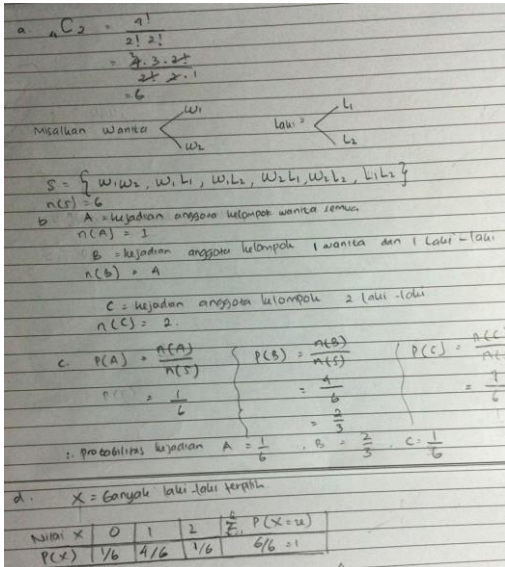 a. 4C2 = 4!
2! 2!
= 4. 3. 2!
2! 2. 1
= 6
Misalkan wanita W1 W2 Laki = L1 L2
S = { W1W2, W1L1, W1L2, W2L1, W2L2, L1L2 }
n(S) = 6
b A = kejadian anggota kelompok wanita semua
n(A) = 1
B = kejadian anggota kelompok 1 wanita dan 1 laki-laki
n(B) = 4
C = kejadian anggota kelompok 2 laki-laki
n(C) = 2.
c. P(A) = n(A)/n(S) P(B) = n(B)/n(S) P(C) = n(C
= 1/6 = 4/6
= 2/3
∴ probabilitas kejadian A = 1/6 , B = 2/3 , C = 1/6
d. X = Banyak laki-laki terpilih
Nilai X 0 1 2 P(X=x)
P(X) 1/6 4/6 1/6 6/6 = 1